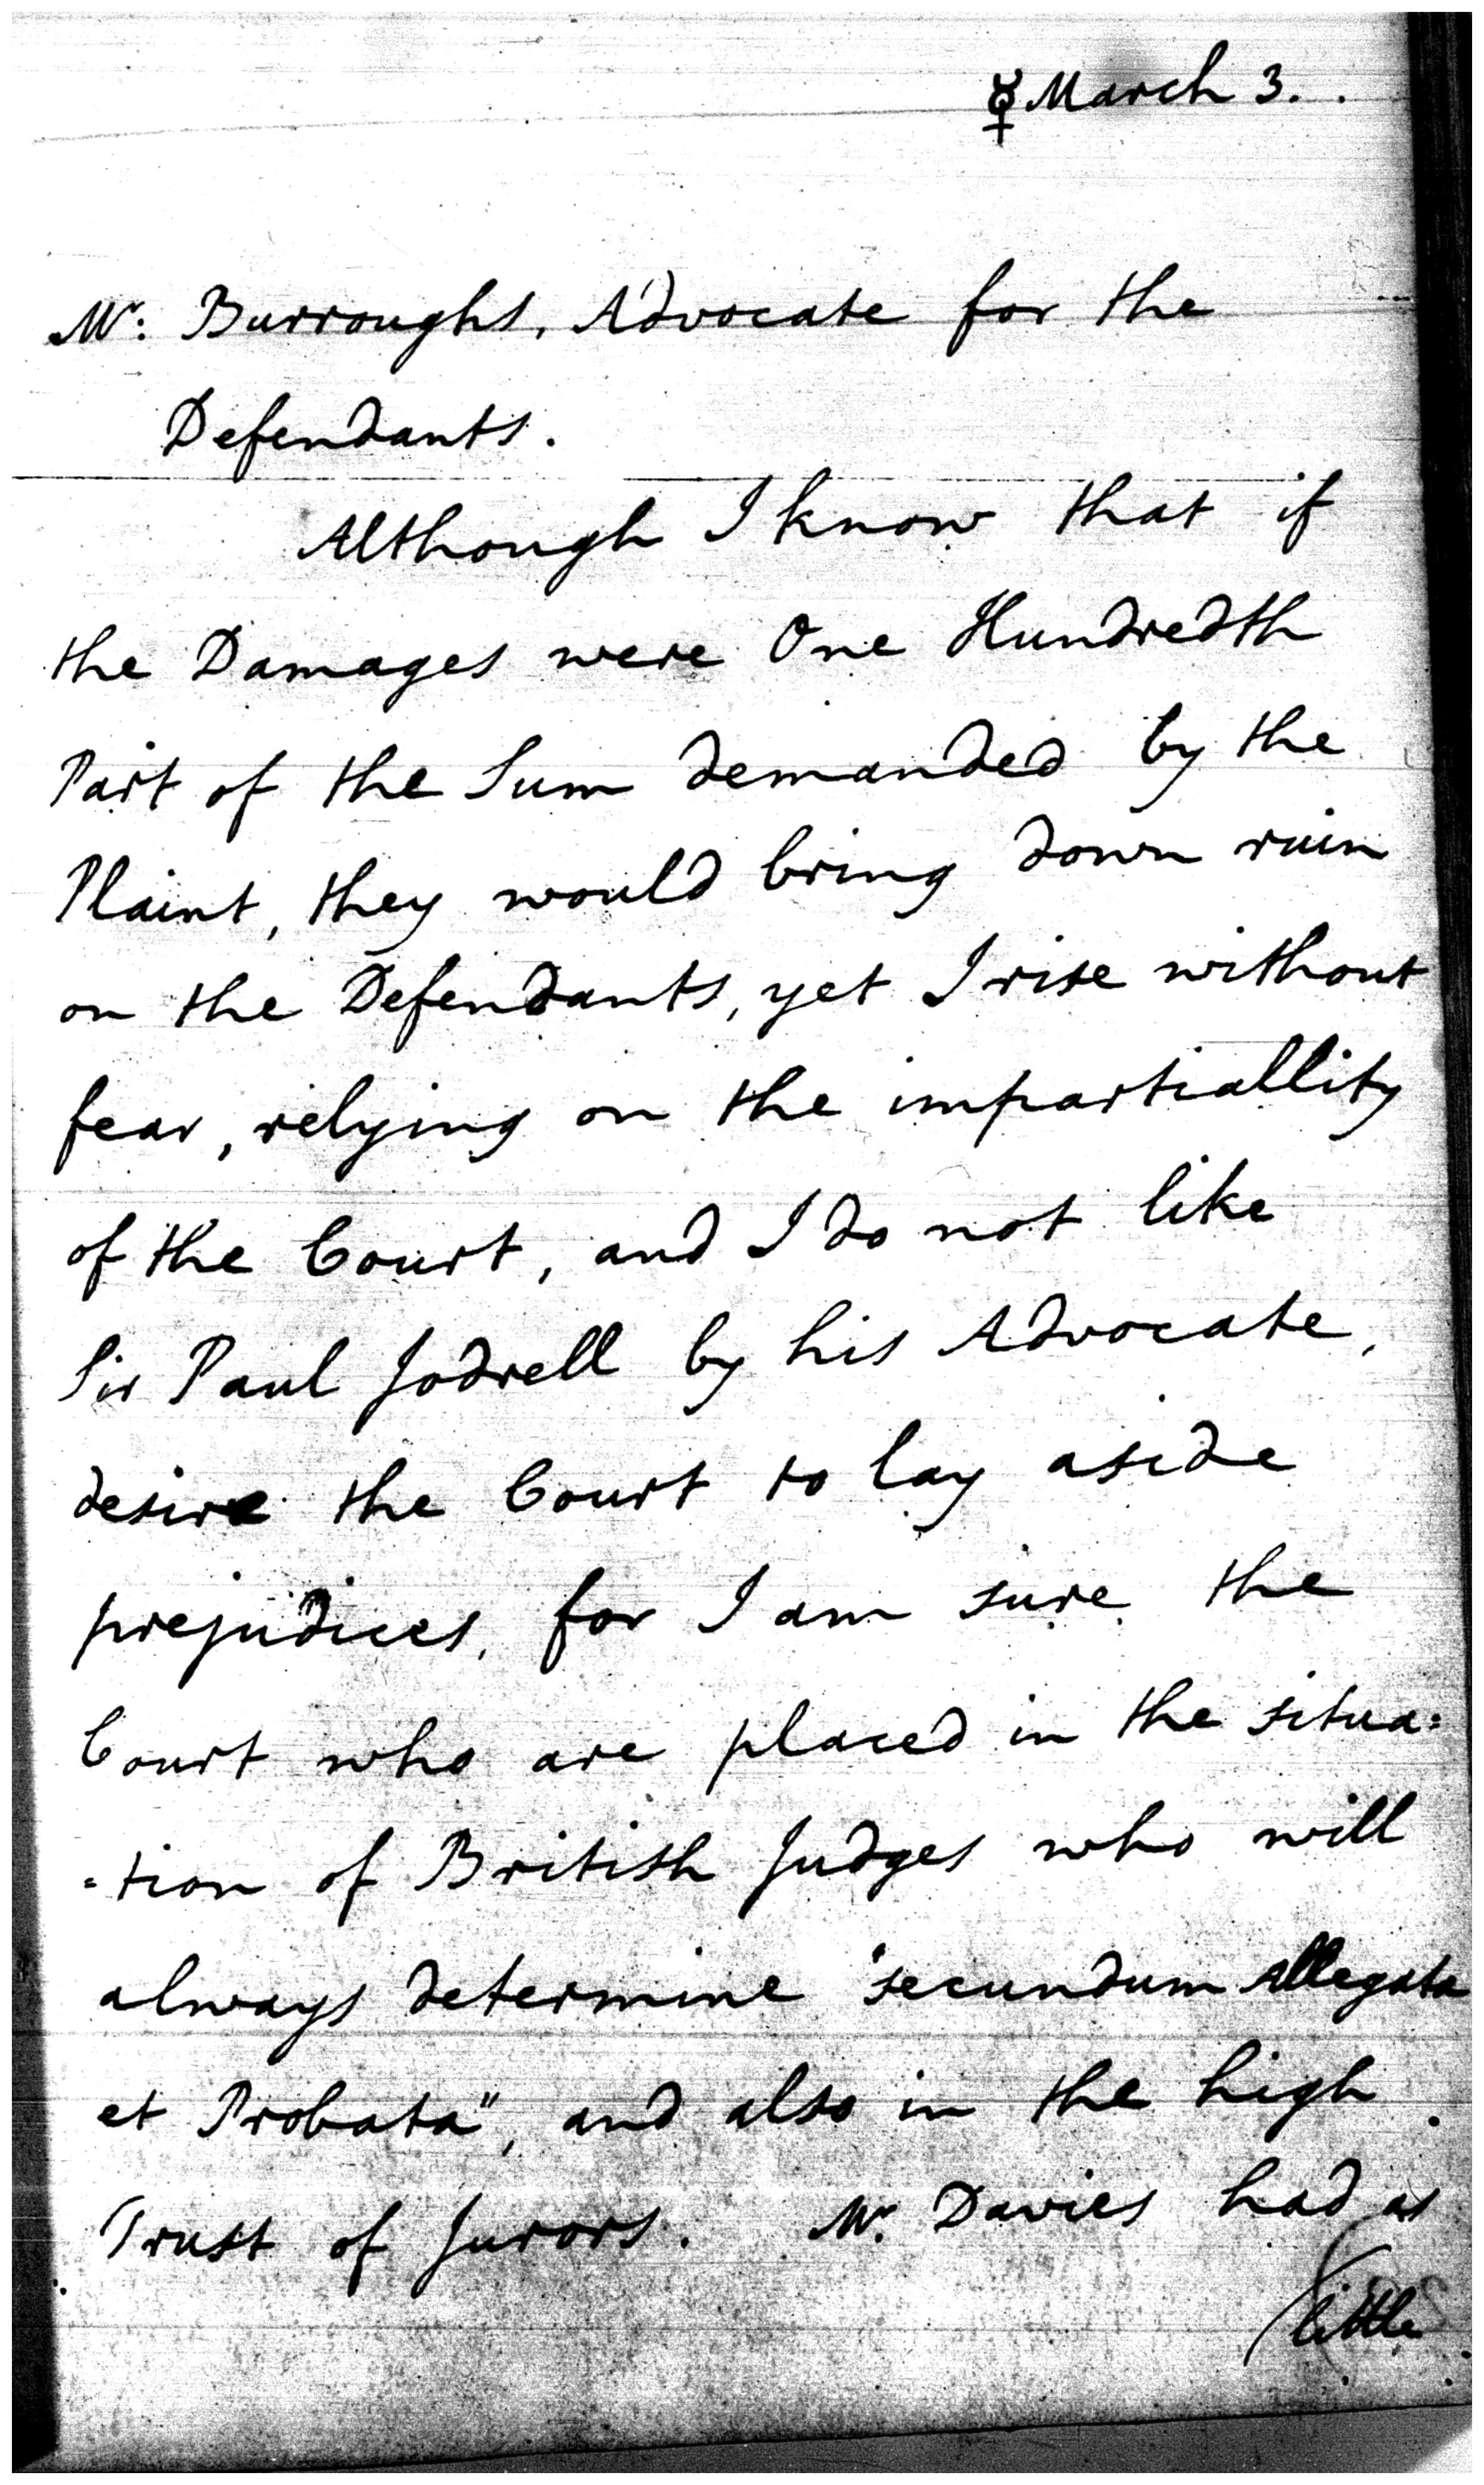 ☿ March 3.
Mr: Burroughs, Advocate for the
Defendants.
Although I know that if
the Damages were One Hundredth
Part of the Sum demanded by the
Plaint, they would bring down ruin
on the Defendants, yet I rise without
fear, relying on the impartiallity
of the Court, and I do not like
Sir Paul Jodrell by his Advocate,
desire the Court to lay aside
prejudices, for I am sure the
Court who are placed in the situa=
=tion of British Judges who will
always determine "secundum Allegata
et Probata", and also in the high
Trust of Jurors. Mr. Davies had as
little